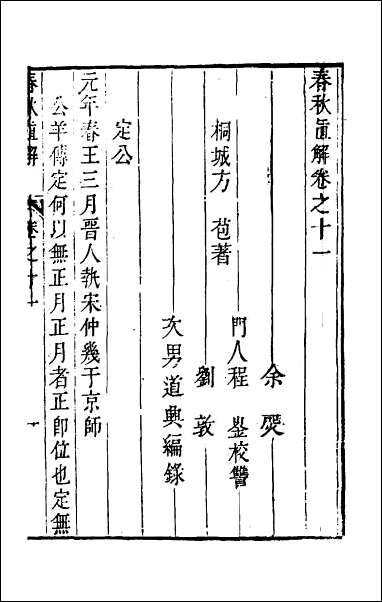 春秋直解卷之十一
桐城方　苞著
余焈
門人程　崟校讐
劉　敦
次男道興編錄
定公
元年春王三月晉人執宋仲幾于京師
公羊傳定何以無正月正月者正即位也定無
春秋直解　卷之十一